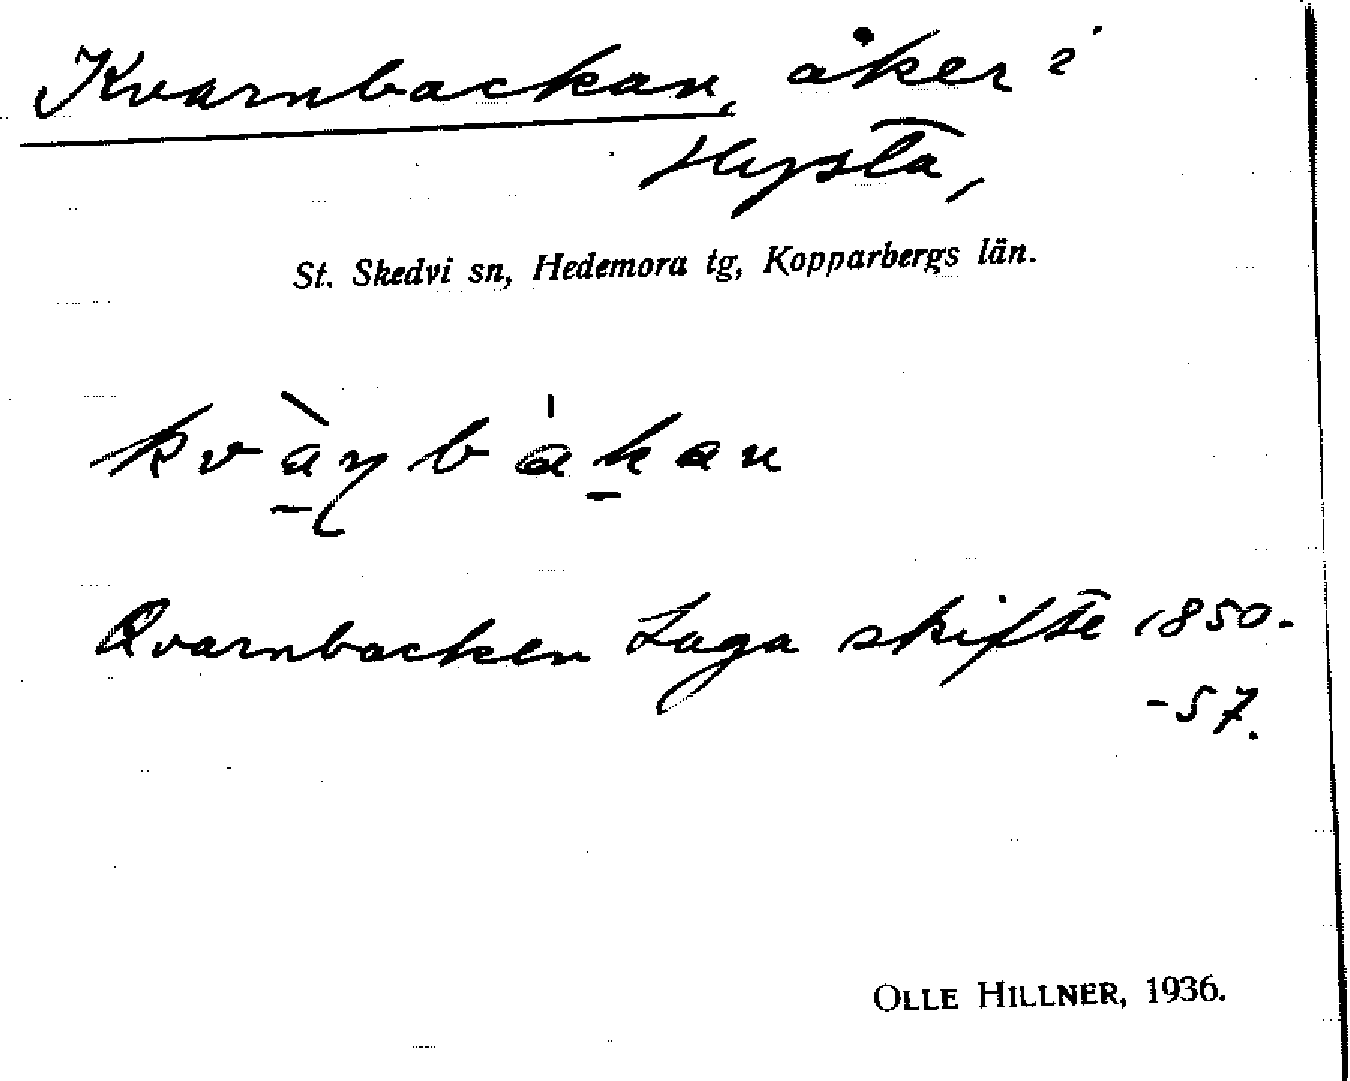 Kvarnbackan, åker i
Hysta,
St. Skedvi sn, Hedemora tg, Kopparbergs län.
kvàṇbákan
Qvarnbacken Laga skifte 1850-
-57.
OLLE HILLNER, 1936.